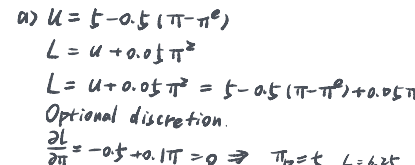 a) u = 5 - 0.5 (π - πᵉ)
L = u + 0.05 π²
L = u + 0.05 π² = 5 - 0.5 (π - πᵉ) + 0.05 π
Optional discretion.
∂L/∂π = -0.5 + 0.1π = 0 ⇒ π = 5 L = 6.25